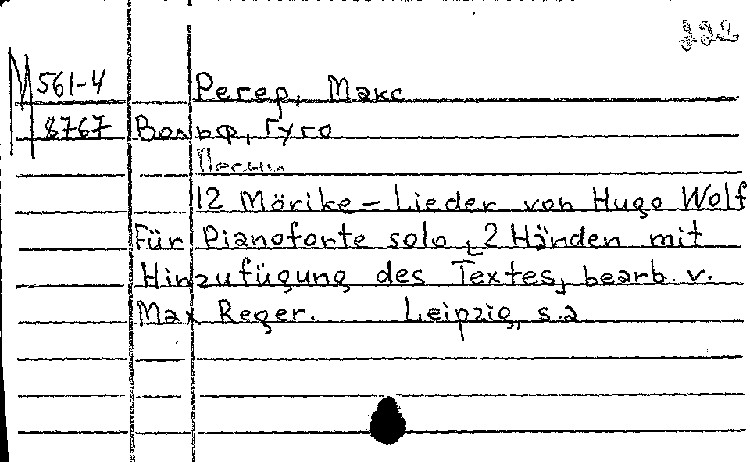 М 561-4
8767
Регер, Макс
Вольф, Гуго
Песни
12 Mörike-Lieder von Hugo Wolf
Für Pianoforte solo [2 Händen mit
Hinzufügung des Textes] bearb. v.
Max Reger. Leipzig, s.a